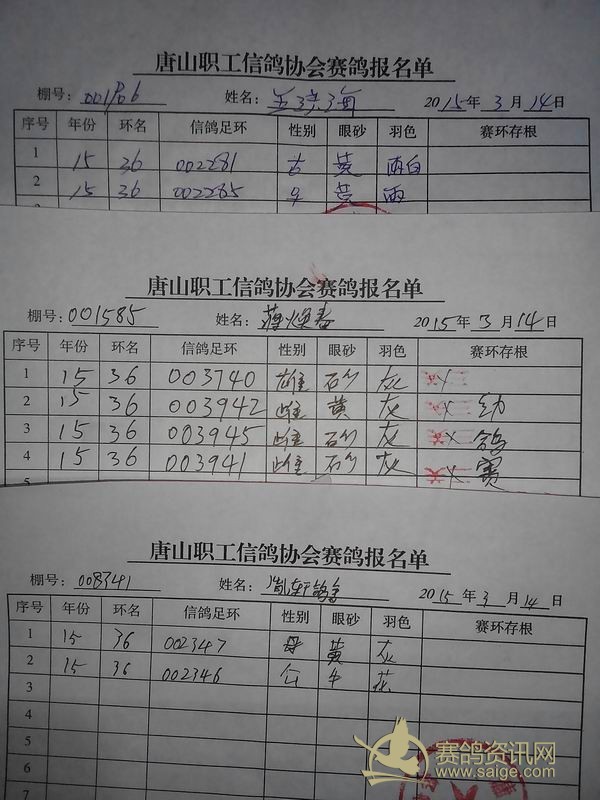 唐山职工信鸽协会赛鸽报名单
棚号: 姓名: 2015年3月14日
序号 年份 环名 信鸽足环 性别 眼砂 羽色 赛环存根
1 15 36 002281 黄 雨白
2 15 36 002285 黄 雨
唐山职工信鸽协会赛鸽报名单
棚号: 001585 姓名: 2015年3月14日
序号 年份 环名 信鸽足环 性别 眼砂 羽色 赛环存根
1 15 36 003740 雄 砂 灰 X
2 15 36 003942 雌 黄 灰 X 幼
3 15 36 003945 雌 砂 灰 X 鸽
4 15 36 003941 雌 砂 灰 X 赛
5
唐山职工信鸽协会赛鸽报名单
棚号: 008341 姓名: 胤轩鸽舍 2015年3月14日
序号 年份 环名 信鸽足环 性别 眼砂 羽色 赛环存根
1 15 36 002347 母 黄 灰
2 15 36 002346 公 牛 花
3
4
5
6
7
赛鸽资讯网
www.saige.com